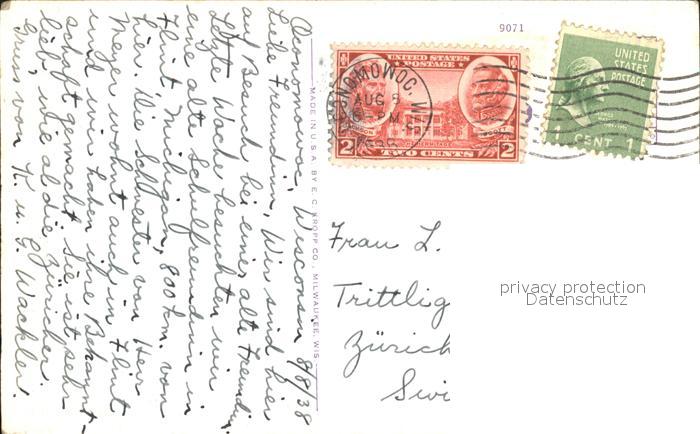 9071
UNITED STATES
POSTAGE
2 TWO CENTS 2
UNITED
STATES
POSTAGE
1 CENT 1
OCONOMOWOC, WI
AUG 8
PM
MADE IN U.S.A. BY E. C. KROPP CO., MILWAUKEE, WIS.
Oconomowoc, Wisconsin 8/8/38
Liebe Freundinn, Wir sind hier
auf Besuch bei einer alte Freundin.
Letzte Woche besuchten wir
eine alte Schulfreundinn in
Flint, Michigan, 800 km. von
hier. Die Schwester von Herr
Meyer wohnt auch in Flint
und wir haben ihre Bekannt-
schaft gemacht. Sie ist sehr
lieb, wie als die Züricher.
Gruss von K. u. G. Wackler.
Frau L.
Trittlig
Zürich
Swi
privacy protection
Datenschutz